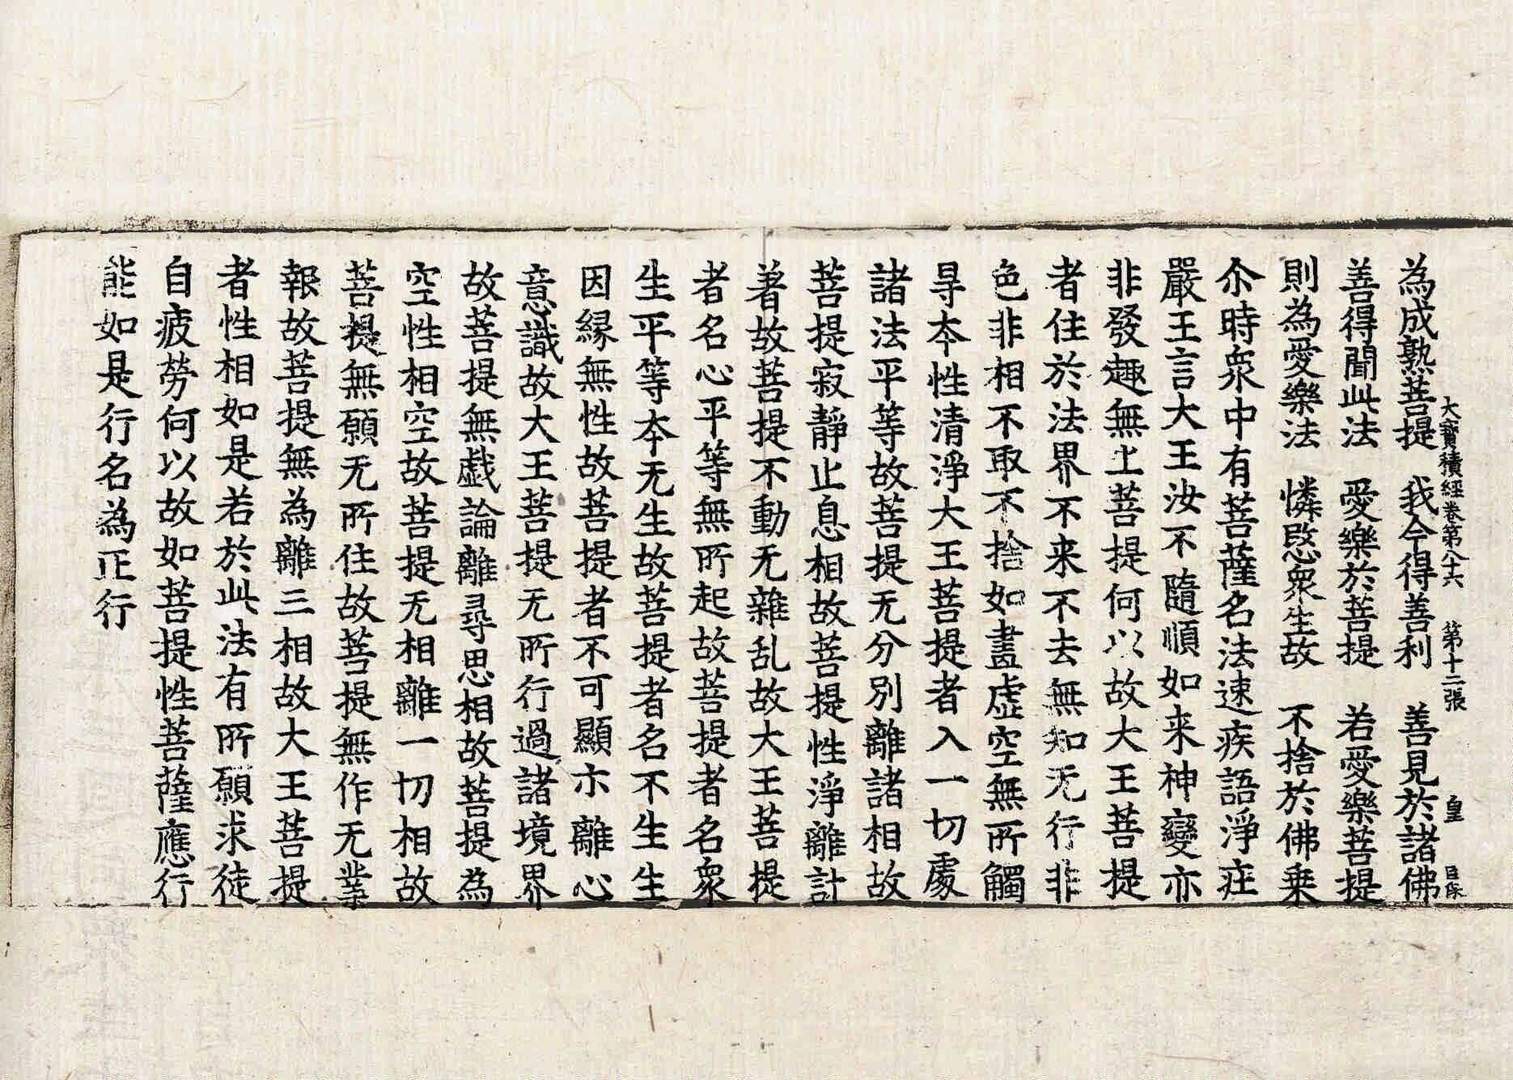 大寶積經卷第八十六 第十二張 皇
為成熟菩提 我今得善利 善見於諸佛
善得聞此法 愛樂於菩提 若愛樂菩提
則為愛樂法 憐愍眾生故 不捨於佛乗
尒時衆中有菩薩名法速疾語淨莊
嚴王言大王汝不隨順如来神變亦
非發趣無上菩提何以故大王菩提
者住於法界不来不去無知无行非
色非相不取不捨如晝虛空無所觸
㝵夲性清淨大王菩提者入一切處
諸法平等故菩提无分別離諸相故
菩提寂靜止息相故菩提性淨離計
著故菩提不動无雜乱故大王菩提
者名心平等無所起故菩提者名衆
生平等夲无生故菩提者名不生生
因縁無性故菩提者不可顯示離心
意識故大王菩提无所行過諸境界
故菩提無戲論離尋思相故菩提為
空性相空故菩提无相離一切相故
菩提無願无所住故菩提無作无業
報故菩提無為離三相故大王菩提
者性相如是若於此法有所願求徒
自疲勞何以故如菩提性菩薩應行
能如是行名為正行